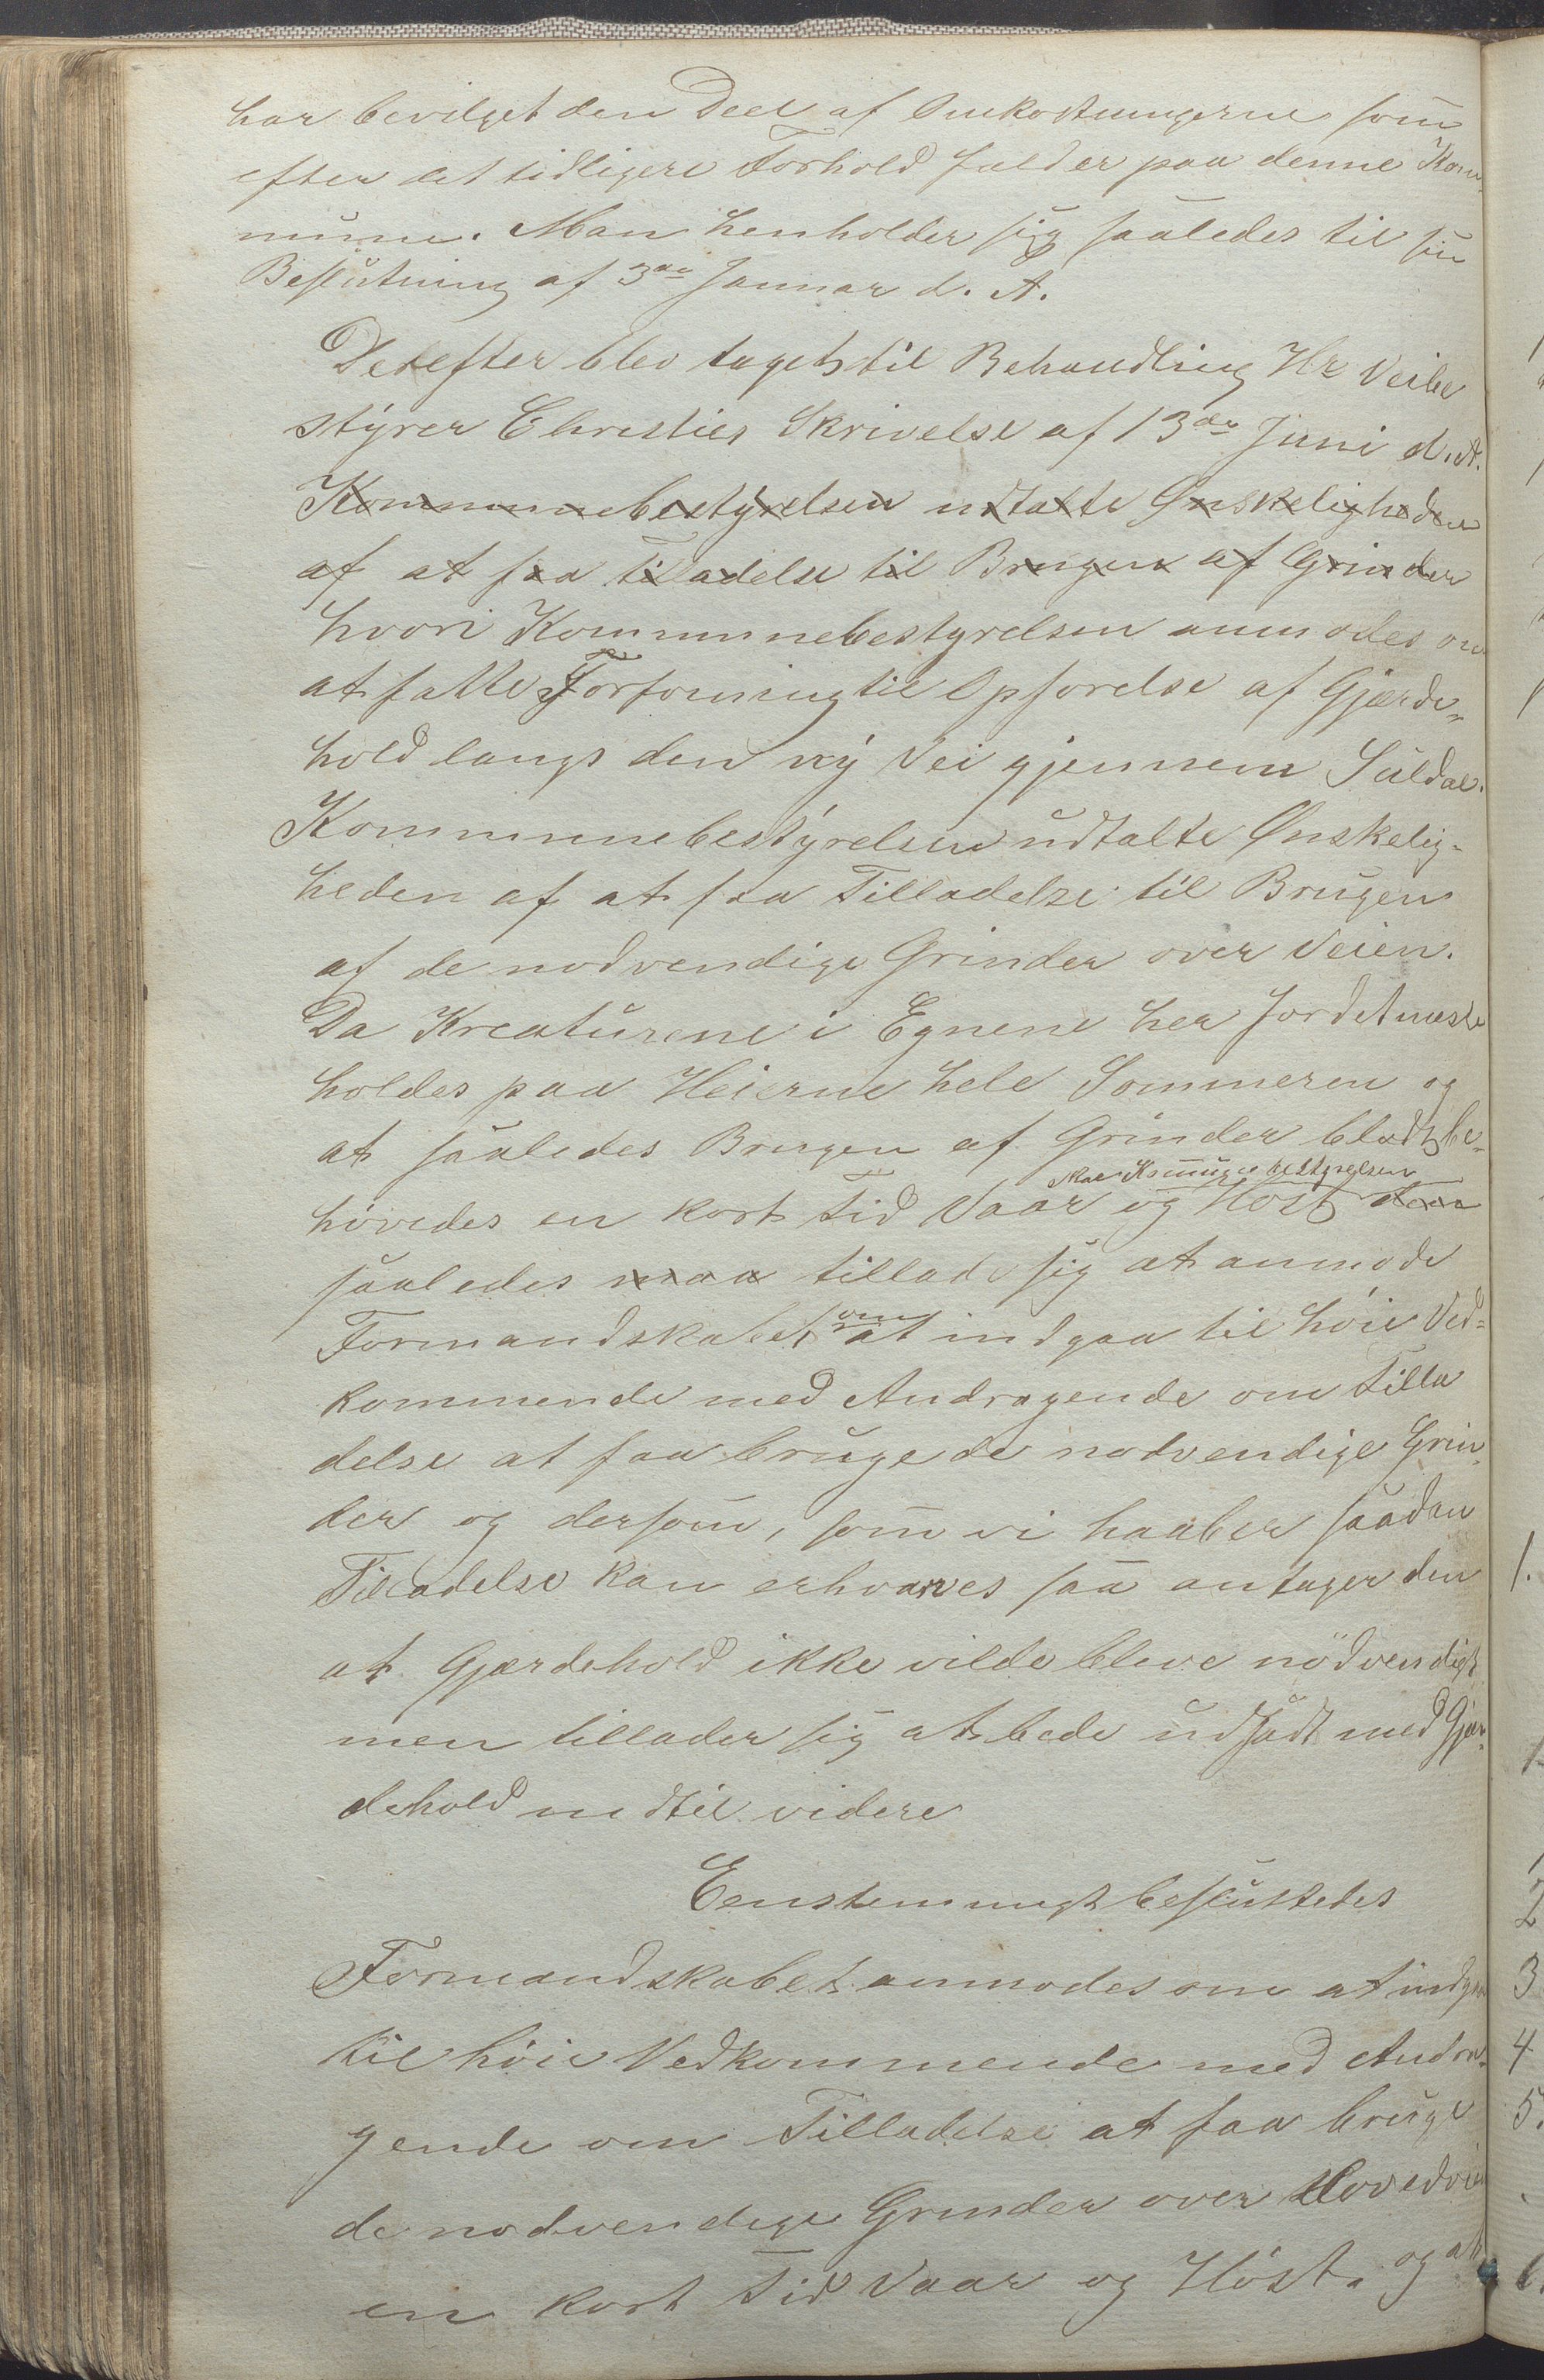 har bevilget den Deel af Omkostningerne som
efter det tidligere Forhold falder paa denne Kom-
mune. Man henholder sig saaledes til sin
Beslutning af 3die Januar d. A.
Derefter blev taget til Behandling Hr Veibe
styrer Christies Skrivelse af 13de Juni d. A.
Kommunebestyrelsen udtalte Ønskeligheden
af at faa tilladelse til Brugen af Grinder
hvori Kommunebestyrelsen anmodes om
at fatte Forføining til Opførelse af Gjærde-
hold langs den ny Vei gjennem Suldal.
Kommunebestyrelsen udtalte Ønskelig-
heden af at faa Tilladelse til Brugen
af de nødvendige Grinder over Veien.
Da Kreaturene i Egnene her for det meste
holdes paa Heierne hele Sommeren og
at saaledes Brugen af Grinder blodt be-
skal Kommunebestyrelsen
høvedes en kort Tid Vaar og Høst den
saaledes maa tillade sig at anmode
Formandskabet om at indgaa til høie Ved-
kommende med Andragende om Tilla
delse at faa bruge de nødvendige Grin-
der og dersom, som vi haaber saadan
Tilladelse kan erhværves saa antager den
at Gjærdehold ikke vilde bleve nødvendigt
men tillader sig at bede udsadt med Gjær-
dehold indtil videre
Eenstemmigt besluttedes
Formandskabet anmodes om at indgaa
til høie Vedkommende med Andra-
gende om Tilladelse at faa bruge
de nødvendige Grinder over Hovedvei
en kort Tid Vaar og Høst. og at